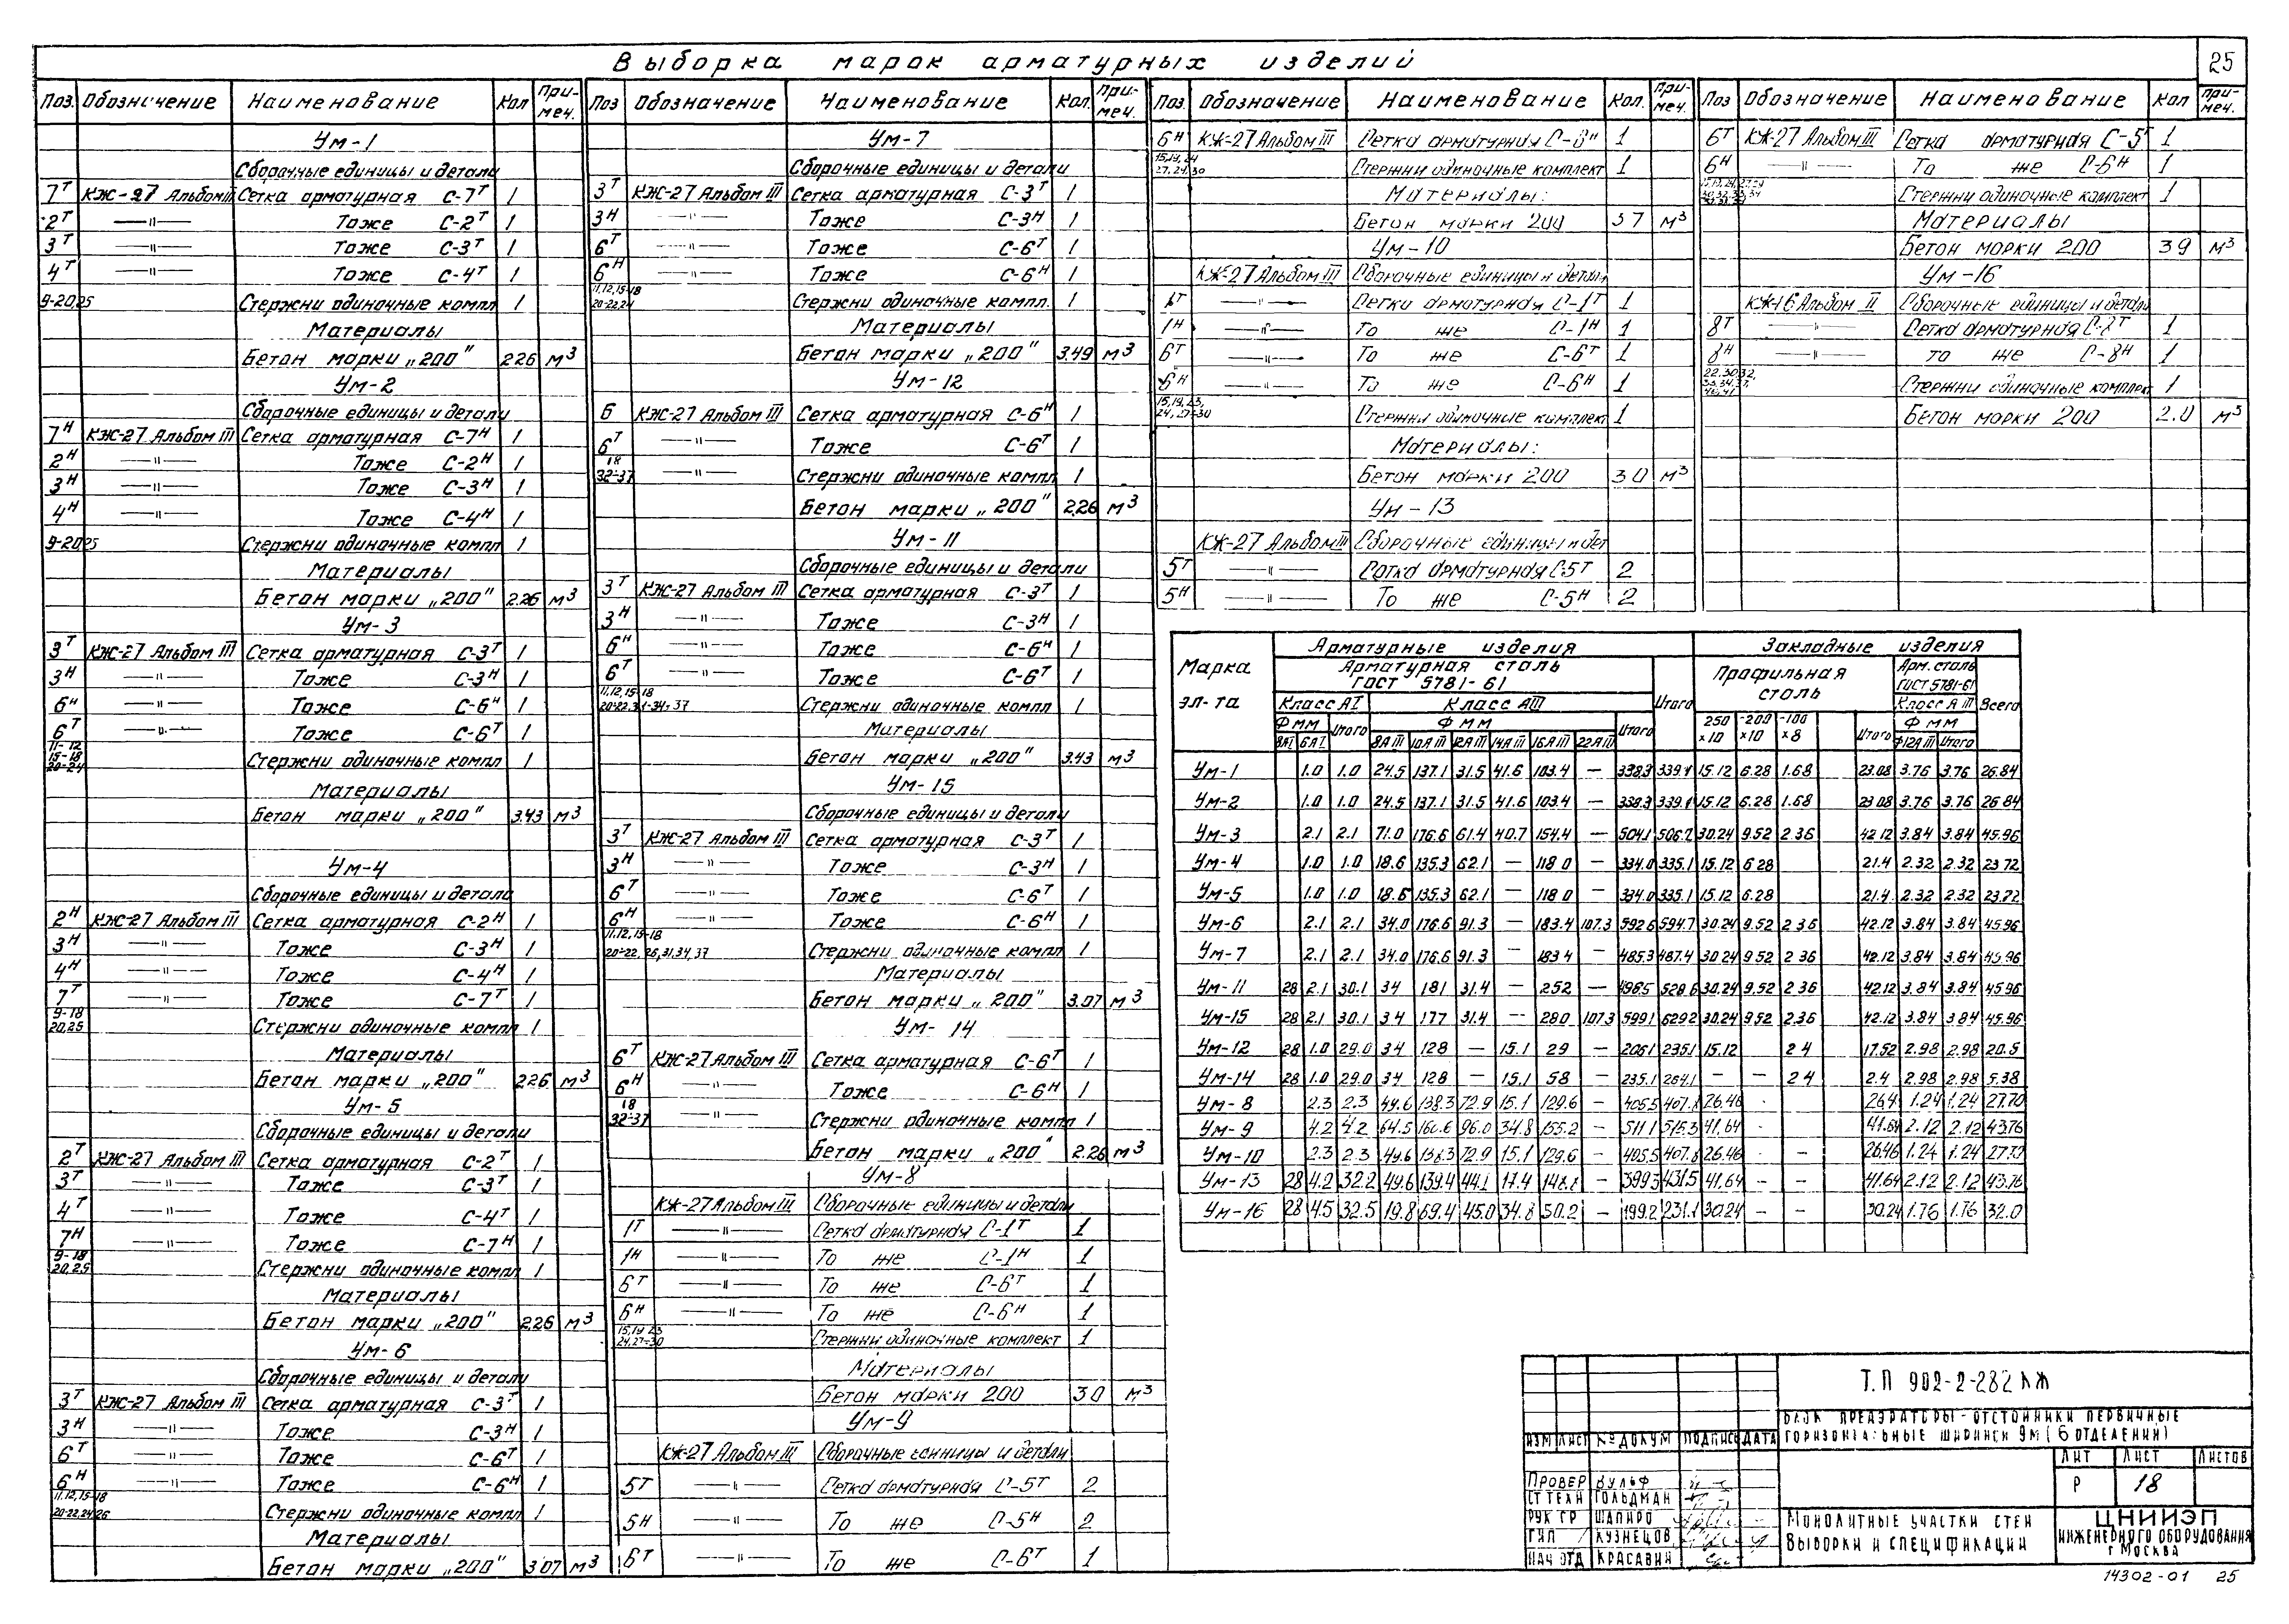 Выборка марок арматурных изделий
25
Поз. Обозначение Наименование Кол При-меч.
Ум-1
Сборочные единицы и детали
7Т КЖ-27 Альбом III Сетка арматурная С-7Т 1
2Т —"— Тоже С-2Т 1
3Т —"— Тоже С-3Т 1
4Т —"— Тоже С-4Т 1
9-20,25 Стержни одиночные компл 1
Материалы
Бетон марки „200" 2.26 м3
Ум-2
Сборочные единицы и детали
7Н КЖ-27 Альбом III Сетка арматурная С-7Н 1
2Н —"— Тоже С-2Н 1
3Н —"— Тоже С-3Н 1
4Н —"— Тоже С-4Н 1
9-20,25 Стержни одиночные компл 1
Материалы
Бетон марки „200" 2.26 м3
Ум-3
3Т КЖ-27 Альбом III Сетка арматурная С-3Т 1
3Н —"— Тоже С-3Н 1
6Н —"— Тоже С-6Н 1
6Т —"— Тоже С-6Т 1
11-12 15-18 20-24 Стержни одиночные компл 1
Материалы
Бетон марки „200" 3.43 м3
Ум-4
Сборочные единицы и детали
2Н КЖ-27 Альбом III Сетка арматурная С-2Н 1
3Н —"— Тоже С-3Н 1
4Н —"— Тоже С-4Н 1
7Т —"— Тоже С-7Т 1
9-18 20,25 Стержни одиночные компл 1
Материалы
Бетон марки „200" 2.26 м3
Ум-5
Сборочные единицы и детали
2Т КЖ-27 Альбом III Сетка арматурная С-2Т 1
3Т —"— Тоже С-3Т 1
4Т —"— Тоже С-4Т 1
7Н —"— Тоже С-7Н 1
9-18 20,25 Стержни одиночные компл 1
Материалы
Бетон марки „200" 2.26 м3
Ум-6
Сборочные единицы и детали
3Т КЖ-27 Альбом III Сетка арматурная С-3Т 1
3Н —"— Тоже С-3Н 1
6Т —"— Тоже С-6Т 1
6Н —"— Тоже С-6Н 1
11,12,15-18 20-22,24,26 Стержни одиночные компл 1
Материалы
Бетон марки „200" 3.07 м3
Поз Обозначение Наименование Кол. При-меч.
Ум-7
Сборочные единицы и детали
3Т КЖ-27 Альбом III Сетка арматурная С-3Т 1
3Н —"— Тоже С-3Н 1
6Т —"— Тоже С-6Т 1
6Н —"— Тоже С-6Н 1
11,12,15-18 20-22,24 Стержни одиночные компл. 1
Материалы
Бетон марки „200" 3.49 м3
Ум-12
6 КЖ-27 Альбом III Сетка арматурная С-6Н 1
6Т —"— Тоже С-6Т 1
18 32-37 —"— Стержни одиночные компл 1
Бетон марки „200" 2.26 м3
Ум-11
Сборочные единицы и детали
3Т КЖ-27 Альбом III Сетка арматурная С-3Т 1
3Н —"— Тоже С-3Н 1
6Н —"— Тоже С-6Н 1
6Т —"— Тоже С-6Т 1
11,12,15-18 20-22,31-34,37 Стержни одиночные компл 1
Материалы
Бетон марки „200" 3.43 м3
Ум-15
Сборочные единицы и детали
3Т КЖ-27 Альбом III Сетка арматурная С-3Т 1
3Н —"— Тоже С-3Н 1
6Т —"— Тоже С-6Т 1
6Н —"— Тоже С-6Н 1
11,12,15-18 20-22,26,31,34,37 Стержни одиночные компл 1
Материалы
Бетон марки „200" 3.07 м3
Ум-14
6Т КЖ-27 Альбом III Сетка арматурная С-6Т 1
6Н —"— Тоже С-6Н 1
18 32-37 —"— Стержни одиночные компл 1
Бетон марки „200" 2.26 м3
Ум-8
КЖ-27 Альбом III Сборочные единицы и детали
1Т —"— Сетка арматурная С-1Т 1
1Н —"— То же С-1Н 1
6Т —"— То же С-6Т 1
6Н —"— То же С-6Н 1
15,19,23 24,27-30 Стержни одиночные комплект 1
Материалы
Бетон марки 200 3.0 м3
Ум-9
КЖ-27 Альбом III Сборочные единицы и детали
5Т —"— Сетка арматурная С-5Т 2
5Н —"— То же С-5Н 2
6Т —"— То же С-6Т 1
Поз. Обозначение Наименование Кол. При-меч.
6Н КЖ-27 Альбом III Сетка арматурная С-6Н 1
Стержни одиночные комплект 1
Материалы:
Бетон марки 200 3 7 м3
Ум-10
КЖ-27 Альбом III Сборочные единицы и детали
1Т —"— Сетки арматурная С-1Т 1
1Н —"— То же С-1Н 1
6Т —"— То же С-6Т 1
6Н —"— То же С-6Н 1
15,19,23, 24,27-30 Стержни одиночные комплект 1
Материалы:
Бетон марки 200 3 0 м3
Ум-13
КЖ-27 Альбом III Сборочные единицы и дет
5Т —"— Сетка арматурная С-5Т 2
5Н —"— То же С-5Н 2
Поз Обозначение Наименование Кол При-меч.
6Т КЖ-27 Альбом III Сетка арматурная С-5Т 1
6Н —"— То же С-6Н 1
Стержни одиночные комплект 1
Материалы
Бетон марки 200 3 9 м3
Ум-16
КЖ-16 Альбом II Сборочные единицы и детали
8Т —"— Сетка арматурная С-8Т 1
8Н —"— то же С-8Н 1
Стержни одиночные комплек 1
Бетон марки 200 2.0 м3
Марка эл-та Арматурные изделия Закладные изделия
Арматурная сталь ГОСТ 5781-61 Итого Профильная сталь Арм. сталь ГОСТ 5781-61 Всего
Класс АI Класс АIII Класс А III
Ф мм Итого Ф мм Итого 250 х10 -200 х10 -100 х8 Итого Ф мм
8АI 6АI 8АIII 10АIII 12АIII 14АIII 16АIII 22АIII Ф12АIII Итого
Ум-1 1.0 1.0 24.5 137.1 31.5 41.6 103.4 — 338.3 339.1 15.12 6.28 1.68 23.08 3.76 3.76 26.84
Ум-2 1.0 1.0 24.5 137.1 31.5 41.6 103.4 — 338.3 339.1 15.12 6.28 1.68 23 08 3.76 3.76 26 84
Ум-3 2.1 2.1 71.0 176.6 61.4 40.7 154.4 — 504.1 506.2 30.24 9.52 2 36 42 12 3.84 3.84 45.96
Ум-4 1.0 1.0 18.6 135.3 62.1 — 118 0 — 334.0 335.1 15.12 6 28 21.4 2.32 2.32 23 72
Ум-5 1.0 1.0 18.6 135.3 62.1 — 118 0 — 334.0 335.1 15.12 6.28 21.4 2.32 2.32 23.72
Ум-6 2.1 2.1 34.0 176.6 91.3 — 183.4 107.3 592.6 594.7 30.24 9.52 2 36 42.12 3.84 3.84 45.96
Ум-7 2.1 2.1 34.0 176.6 91.3 — 183 4 — 485.3 487.4 30.24 9.52 2 36 42.12 3.84 3.84 45.96
Ум-11 28 2.1 30.1 34 181 31.4 — 252 — 498.5 528.6 30.24 9.52 2 36 42.12 3.84 3.84 45.96
Ум-15 28 2.1 30.1 34 177 31.4 — 280 107.3 599.1 629.2 30.24 9.52 2.36 42.12 3.84 3.84 45.96
Ум-12 28 1.0 29.0 34 128 — 15.1 29 — 206.1 235.1 15.12 2 4 17.52 2.98 2.98 20.5
Ум-14 28 1.0 29.0 34 128 — 15.1 58 — 235.1 264.1 — — 2 4 2.4 2.98 2.98 5.38
Ум-8 2.3 2.3 49.6 138.3 72.9 15.1 129.6 — 405.5 407.8 26.46 26.4 1.24 1.24 27.70
Ум-9 4.2 4.2 64.5 160.6 96.0 34.8 155.2 — 511.1 515.3 41.64 41.64 2.12 2.12 43.76
Ум-10 2.3 2.3 49.6 138.3 72.9 15.1 129.6 — 405.5 407.8 26.46 — 26.46 1.24 1.24 27.70
Ум-13 28 4.2 32.2 49.6 139.4 44.1 17.4 148.8 — 399.3 431.5 41.64 — — 41.64 2.12 2.12 43.76
Ум-16 28 4.5 32.5 19.8 69.4 45.0 34.8 50.2 — 199.2 231.1 30.24 — — 30.24 1.76 1.76 32.0
Т.П 902-2-282 КЖ
БЛОК ПРЕАЭРАТОРЫ-ОТСТОЙНИКИ ПЕРВИЧНЫЕ
ГОРИЗОНТАЛЬНЫЕ ШИРИНОЙ 9м (6 ОТДЕЛЕНИЙ)
ИЗМ ЛИСТ № ДОКУМ ПОДПИСЬ ДАТА
ПРОВЕР ВУЛЬФ
СТ ТЕХН ГОЛЬДМАН
РУК ГР ШАПИРО
ГИП КУЗНЕЦОВ
НАЧ ОТД КРАСАВИН
ЛИТ ЛИСТ ЛИСТОВ
Р 18
МОНОЛИТНЫЕ УЧАСТКИ СТЕН
ВЫБОРКИ И СПЕЦИФИКАЦИИ
ЦНИИЭП
ИНЖЕНЕРНОГО ОБОРУДОВАНИЯ
г МОСКВА
14302-01 25